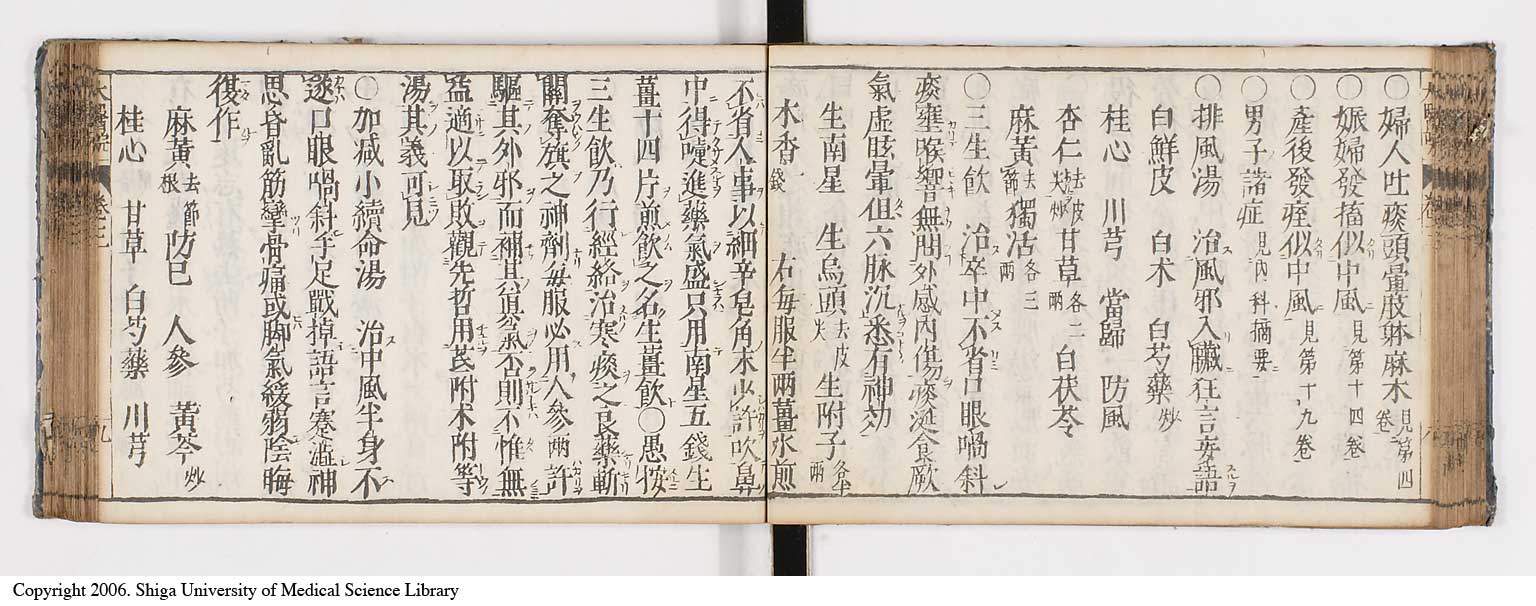 ○婦人吐痰頭暈肢躰麻木見第四卷
○娠婦發搐似中風見第十四卷
○產後發痙似中風見第十九卷
○男子諸症見內科摘要
○排風湯 治風邪入臟狂言妄語
白鮮皮 白术 白芍藥炒
桂心 川芎 當歸 防風
杏仁去皮尖炒 甘草各二兩 白茯苓
麻黃去節 獨活各三兩
○三生飲 治卒中不省口眼喎斜
痰壅喉響無問外感內傷痰涎食厥
氣虛眩暈但六脉沉悉有神効
生南星 生烏頭去皮尖 生附子各半兩
木香錢 右每服半兩薑水煎
不省人事以細辛皂角末少許吹鼻
中得嚏進藥氣盛只用南星五錢生
薑十四片煎飲之名生薑飲○愚按
三生飲乃行經絡治寒痰之良藥斬
關奪旗之神劑每服必用人參兩許
驅其外邪而補其眞氣否則不惟無
益適以取敗觀先哲用芪附术附等
湯其義可見
○加减小續命湯 治中風半身不
遂口眼喎斜手足戰掉語言蹇澁神
思昏亂筋攣骨痛或脚氣緩弱陰晦
復作
麻黃去節根 防巳 人參 黃芩炒
桂心 甘草 白芍藥 川芎
Copyright 2006. Shiga University of Medical Science Library